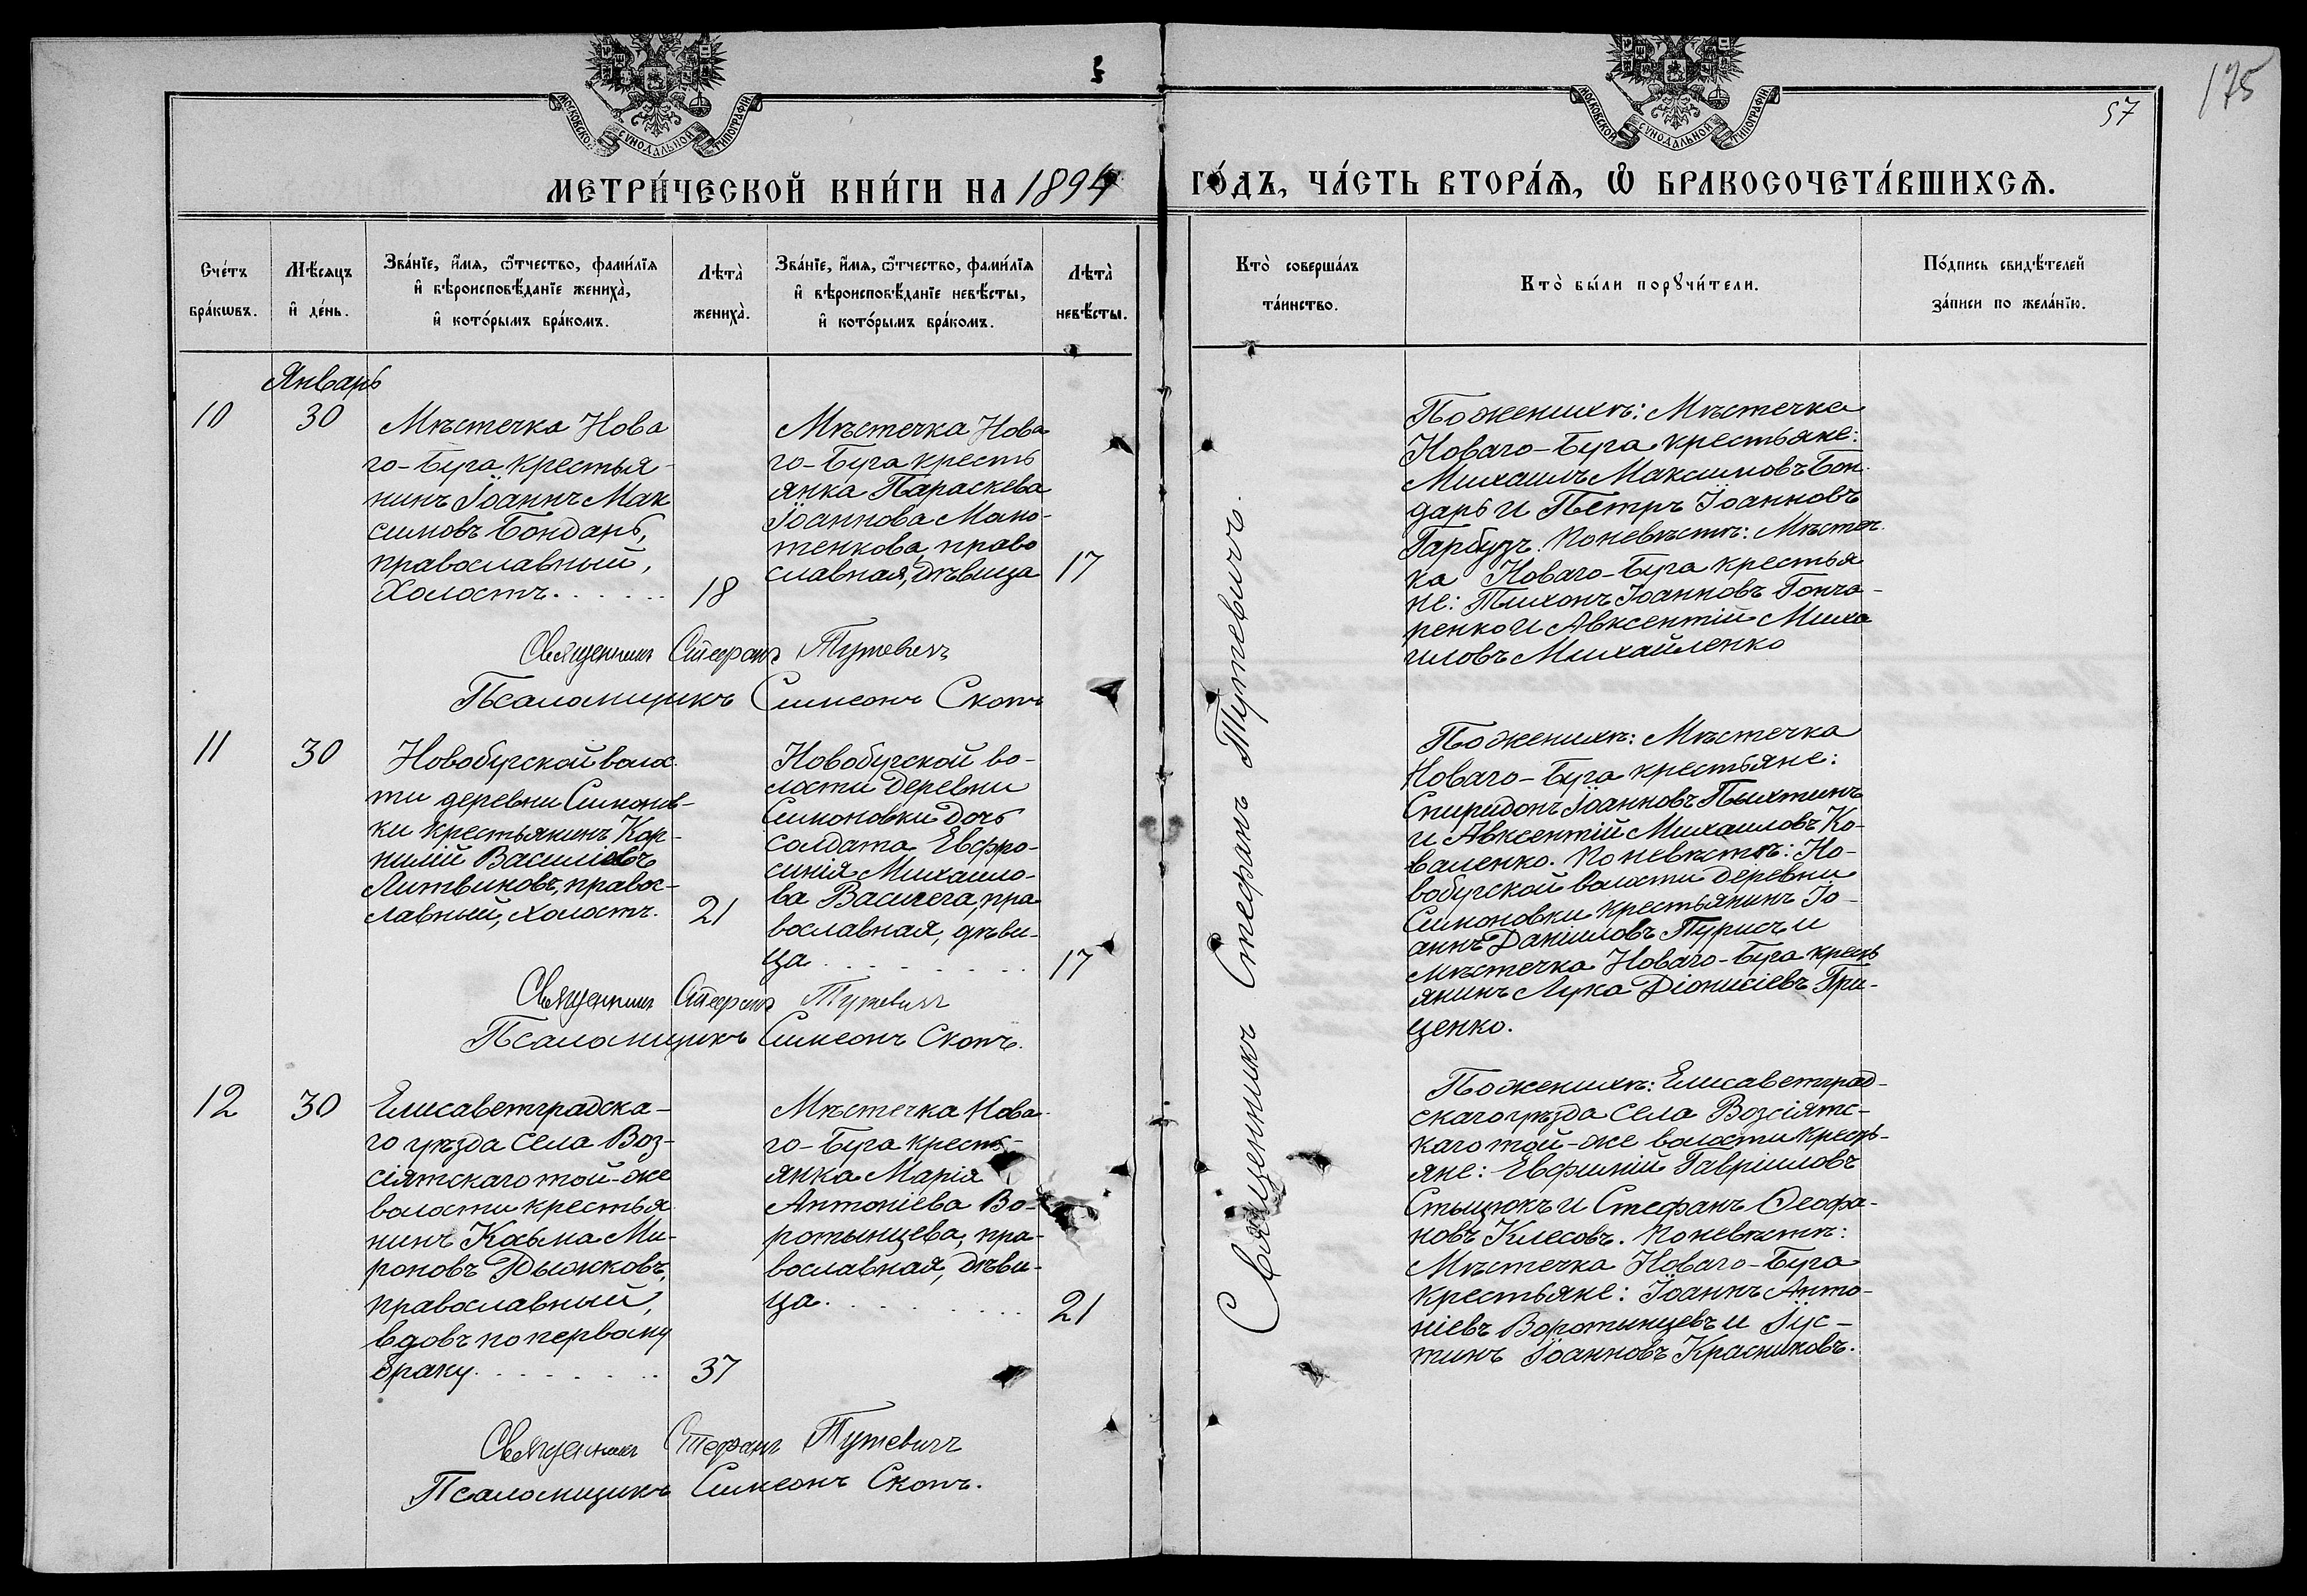 МОСКОВСКОЙ СѴНОДАЛЬНОЙ ТИПОГРАФІИ
МОСКОВСКОЙ СѴНОДАЛЬНОЙ ТИПОГРАФІИ
175
57
МЕТРИ́ЧЕСКОЙ КНИ́ГИ НА 1894 ГО́ДЪ, ЧА́СТЬ ВТОРА́Ѧ, Ѽ БРАКОСОЧЕТА́ВШИХСѦ.
Сче́тъ бра́кѡвъ.
Мѣ́сяцъ и҆ де́нь.
Зва́нїе, и҆́мѧ, ѻ҆́тчество, фами́лїѧ
и҆ вѣроисповѣ́данїе жениха̀,
и҆ кото́рымъ бра́комъ.
Лѣта̀ жениха̀.
Зва́нїе, и҆́мѧ, ѻ҆́тчество, фами́лїѧ
и҆ вѣроисповѣ́данїе невѣ́сты,
и҆ кото́рымъ бра́комъ.
Лѣта̀ невѣ́сты.
Кто̀ соверша́лъ та́инство.
Кто̀ бы́ли порꙋчи́тели.
По́дпись свидѣ́телей за́писи по жела́нїю.
Январь
10
30
Мѣстечка Нова
го-Буга крестья-
нинъ Іоаннъ Мак
симовъ Бондарь,
православный,
Холостъ.
18
Мѣстечка Нова
го-Буга кресть
янка Параскева
Іоаннова Мано-
тенкова, право
славная, дѣвица
17
Священникъ Стефанъ Тутевичъ
Псаломщикъ Симеонъ Скопъ
По женихѣ: Мѣстечка
Новаго-Буга крестьяне:
Михаилъ Максимовъ Бон-
дарь и Петръ Іоанновъ
Гарбузъ. По невѣстѣ: Мѣстеч-
ка Новаго-Буга крестья
не: Тихонъ Іоанновъ Гонча-
ренко и Авксентій Миха
иловъ Михайленко
11
30
Новобугской волос-
ти деревни Симонов-
ки крестьянинъ Кор-
нилій Василіевъ
Литвиновъ, правос-
лавный, холостъ.
21
Новобугской во-
лости деревни
Симоновки дочь
солдата Евфро-
синія Михаило-
ва Васичега, пра-
вославная, дѣви-
ца
17
Священникъ Стефанъ Тутевичъ
Псаломщикъ Симеонъ Скопъ.
По женихѣ: Мѣстечка
Новаго-Буга крестьяне:
Спиридонъ Іоанновъ Пыхтинъ
и Авксентій Михаиловъ Ко-
валенко. По невѣстѣ: Но-
вобугской волости деревни
Симоновки крестьянинъ Іо-
аннъ Даниловъ Турисъ и
мѣстечка Новаго-Буга кресть
янинъ Лука Діонисіевъ Гри-
ценко.
12
30
Елисаветградска-
го уѣзда села Воз-
сіятскаго той-же
волости крестья
нинъ Косьма Ми-
роновъ Рыжковъ,
православный,
вдовъ по первому
браку
37
Мѣстечка Нова-
го-Буга кресть-
янка Марія
Антоніева Во-
ротынцева, пра-
вославная, дѣви-
ца.
21
Священникъ Стефанъ Тутевичъ
Псаломщикъ Симеонъ Скопъ.
По женихѣ: Елисаветград-
скаго уѣзда села Возсіятс-
каго той-же волости кресть-
яне: Евфимій Гавріиловъ
Стыцюкъ и Стефанъ Ѳеофа-
новъ Клесовъ. По невѣстѣ:
Мѣстечка Новаго-Буга
крестьяне: Іоаннъ Анто-
ніевъ Воротынцевъ и Іус-
тинъ Іоанновъ Красниковъ.
Священникъ Стефанъ Тутевичъ.